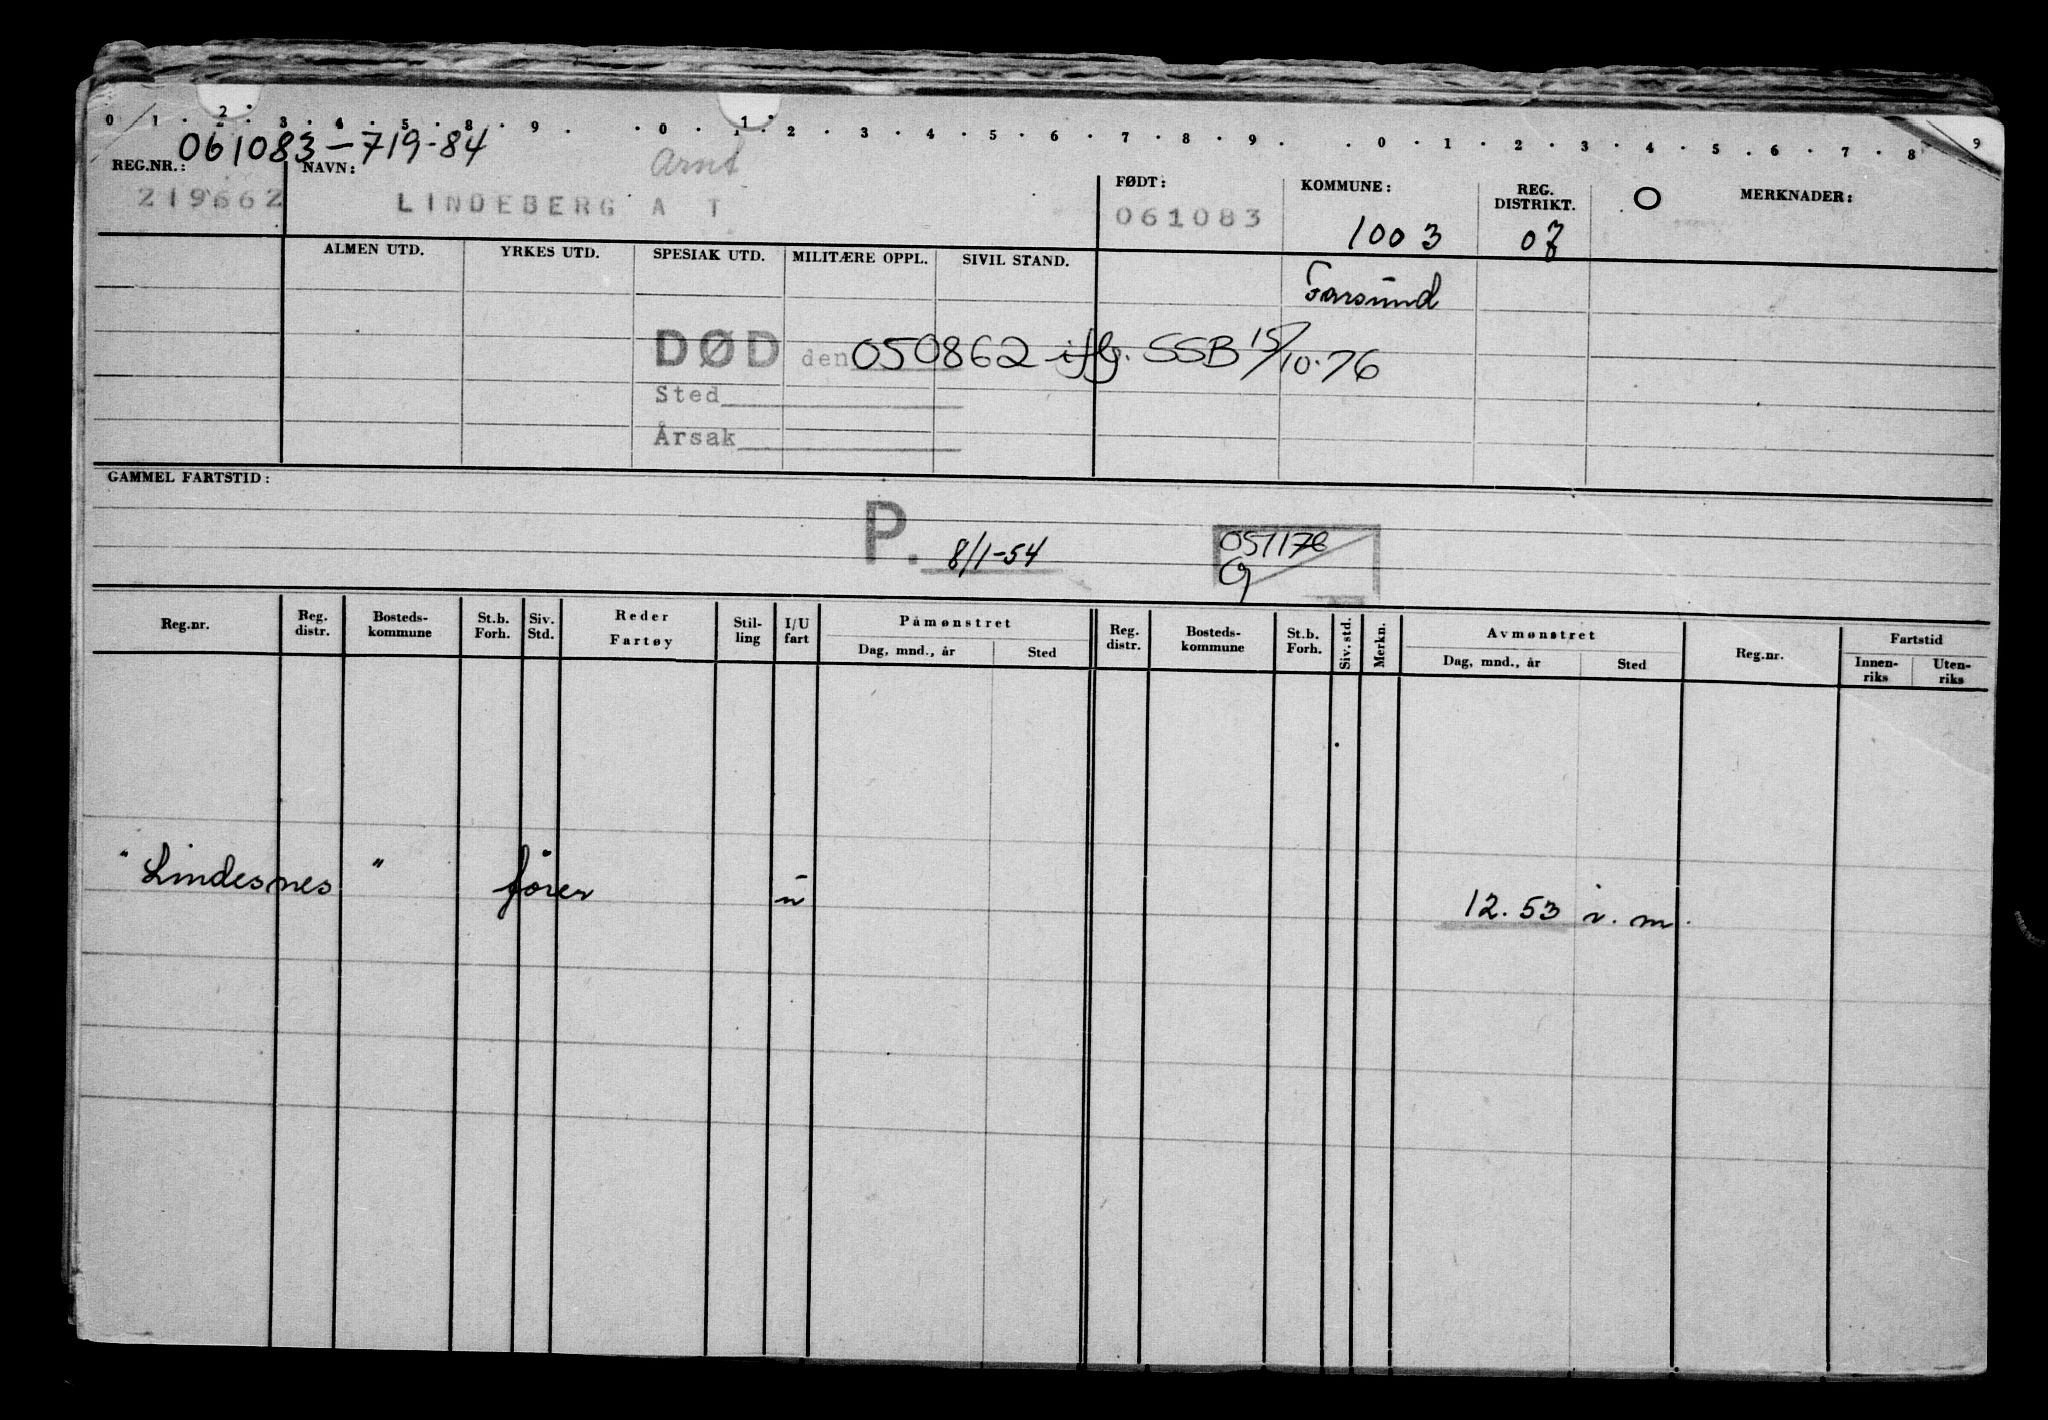 0 1 . 2 . 3 . 4 . 5 . 8 . 9 . . 0 . 1 . 2 . 3 . 4 . 5 . 6 . 7 . 8 . 9 . . 0 . 1 . 2 . 3 . 4 . 5 . 6 . 7 . 8 9
061083-719-84
Arnt
REG.NR.: NAVN: FØDT: KOMMUNE: REG. DISTRIKT. O MERKNADER:
219662 LINDEBERG A T 061083 1003 07
ALMEN UTD. YRKES UTD. SPESIAK UTD. MILITÆRE OPPL. SIVIL STAND.
Farsund
DØD den 050862 iflg. SSB 15/10-76
Sted
Årsak
GAMMEL FARTSTID:
P. 8/1-54
051176
Reg.nr. Reg. distr. Bosteds-kommune St.b. Forh. Siv. Std. Reder Fartøy Stil-ling I/U fart Påmønstret Dag, mnd., år Sted Reg. distr. Bosteds-kommune St.b. Forh. Siv. std. Merkn. Avmønstret Dag, mnd., år Sted Reg.nr. Fartstid Innen-riks Uten-riks
"Lindesnes" fører u 12.53 i. m.